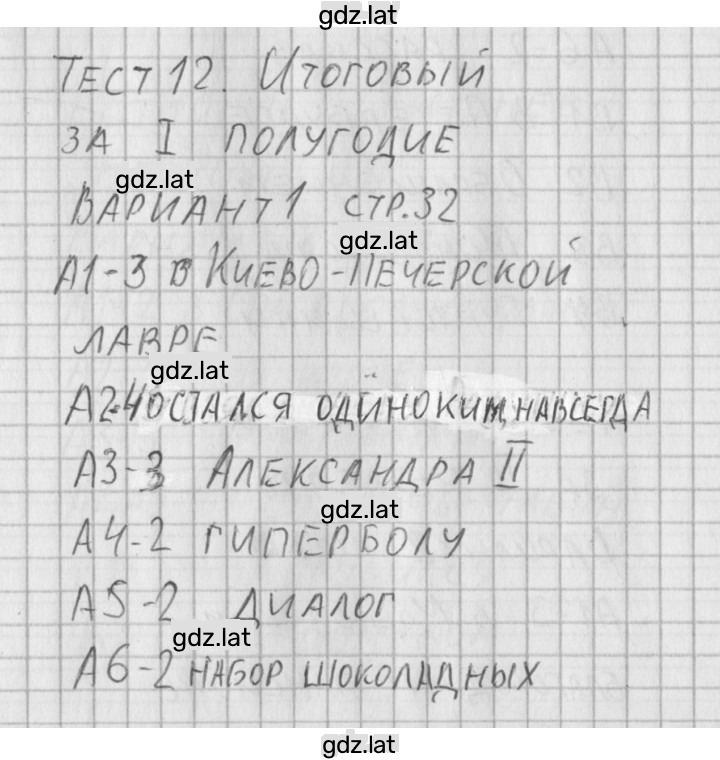 gdz.lat
ТЕСТ 12. ИТОГОВЫЙ
ЗА I ПОЛУГОДИЕ
gdz.lat
ВАРИАНТ 1 СТР.32
gdz.lat
А1-3 В КИЕВО-ПЕЧЕРСКОЙ
ЛАВРЕ
gdz.lat
А2-4 ОСТАЛСЯ ОДИНОКИМ НАВСЕГДА
А3-3 АЛЕКСАНДРА II
gdz.lat
А4-2 ГИПЕРБОЛУ
А5-2 ДИАЛОГ
gdz.lat
А6-2 НАБОР ШОКОЛАДНЫХ
gdz.lat